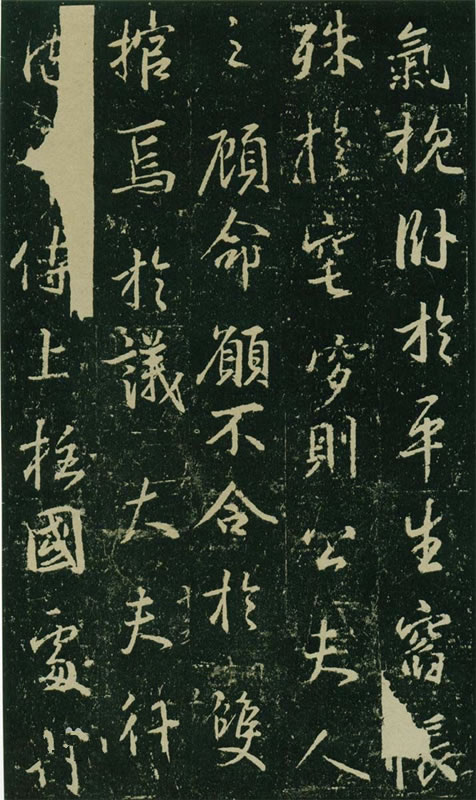 氣於平生窅
殊於窀穸則公夫人
之顧命願不合於雙
棺焉於議大夫行
侍上柱國處行